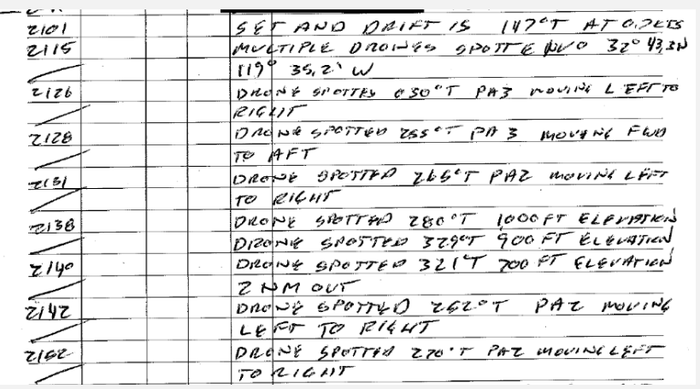 2101 SET AND DRIFT IS 147°T AT 0.7KTS
2115 MULTIPLE DRONES SPOTTE IVO 32° 43.3N
119° 35.2' W
2126 DRONE SPOTTED 030°T PA3 MOVING LEFT TO
RIGHT
2128 DRONE SPOTTED 255°T PA3 MOVING FWD
TO AFT
2131 DRONE SPOTTED 265°T PA2 MOVING LEFT
TO RIGHT
2138 DRONE SPOTTED 280°T 1000FT ELEVATION
DRONE SPOTTED 329°T 900FT ELEVATION
2140 DRONE SPOTTED 321°T 700 FT ELEVATION
2 NM OUT
2142 DRONE SPOTTED 262°T PA2 MOVING
LEFT TO RIGHT
2152 DRONE SPOTTED 270°T PA2 MOVING LEFT
TO RIGHT